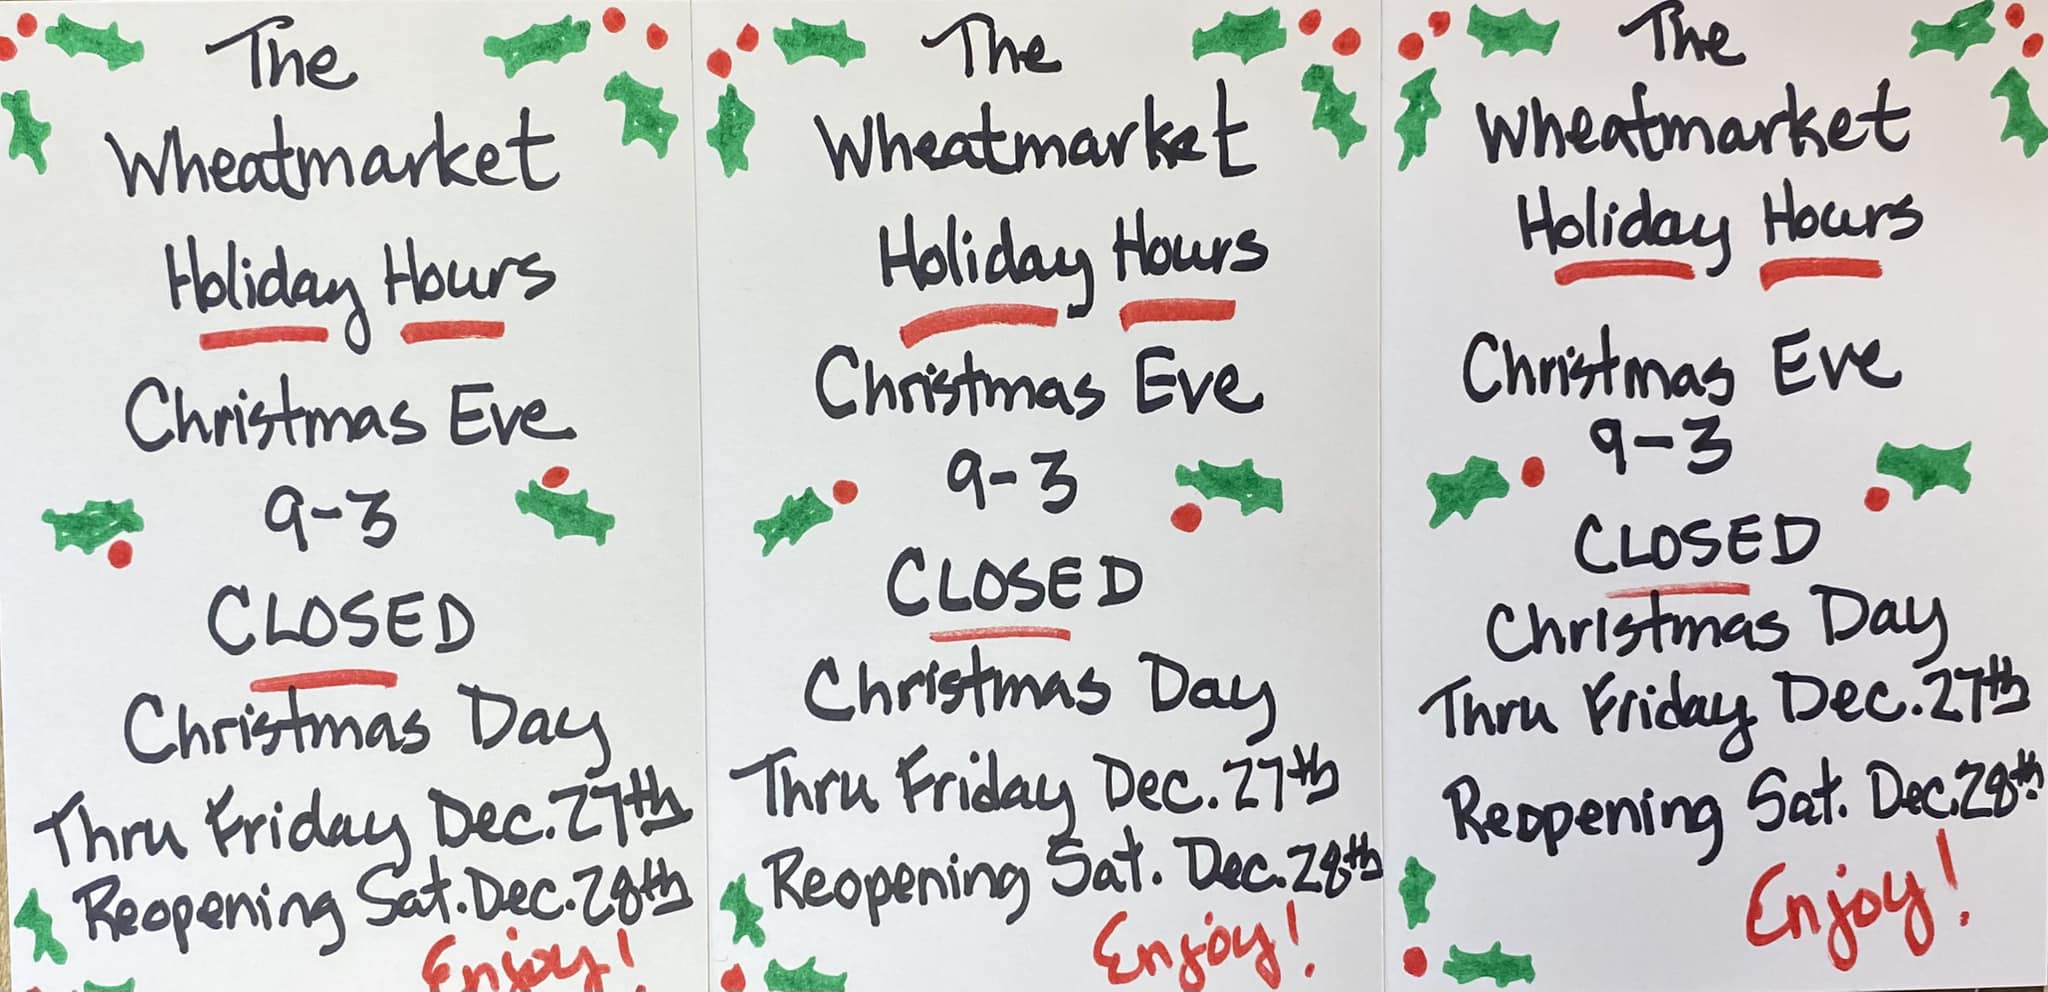 The
Wheatmarket
Holiday Hours
Christmas Eve
9-3
CLOSED
Christmas Day
Thru Friday Dec. 27th
Reopening Sat. Dec. 28th
Enjoy!
The
Wheatmarket
Holiday Hours
Christmas Eve
9-3
CLOSED
Christmas Day
Thru Friday Dec. 27th
Reopening Sat. Dec. 28th
Enjoy!
The
Wheatmarket
Holiday Hours
Christmas Eve
9-3
CLOSED
Christmas Day
Thru Friday Dec. 27th
Reopening Sat. Dec. 28th
Enjoy!